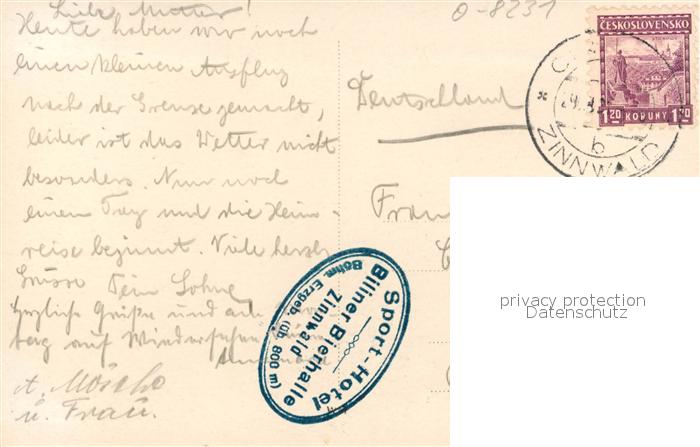 Liebe Mutter!
Heute haben wir noch
einen kleinen Ausflug
nach der Grenze gemacht,
leider ist das Wetter nicht
besonders. Nur noch
einen Tag und die Heim-
reise beginnt. Viele herzl.
Grüsse Dein Sohn
Herzliche Grüße und
auf Wiedersehen
A.
u. Frau.
0-8231
ČESKOSLOVENSKO
1.20 KORUNY 1.20
b
ZINNWALD
Deutschland
Frau
Sport-Hotel
Biliner Bierhalle
Zinnwald
Böhm. Erzgeb. (üb. 800 m)
privacy protection
Datenschutz